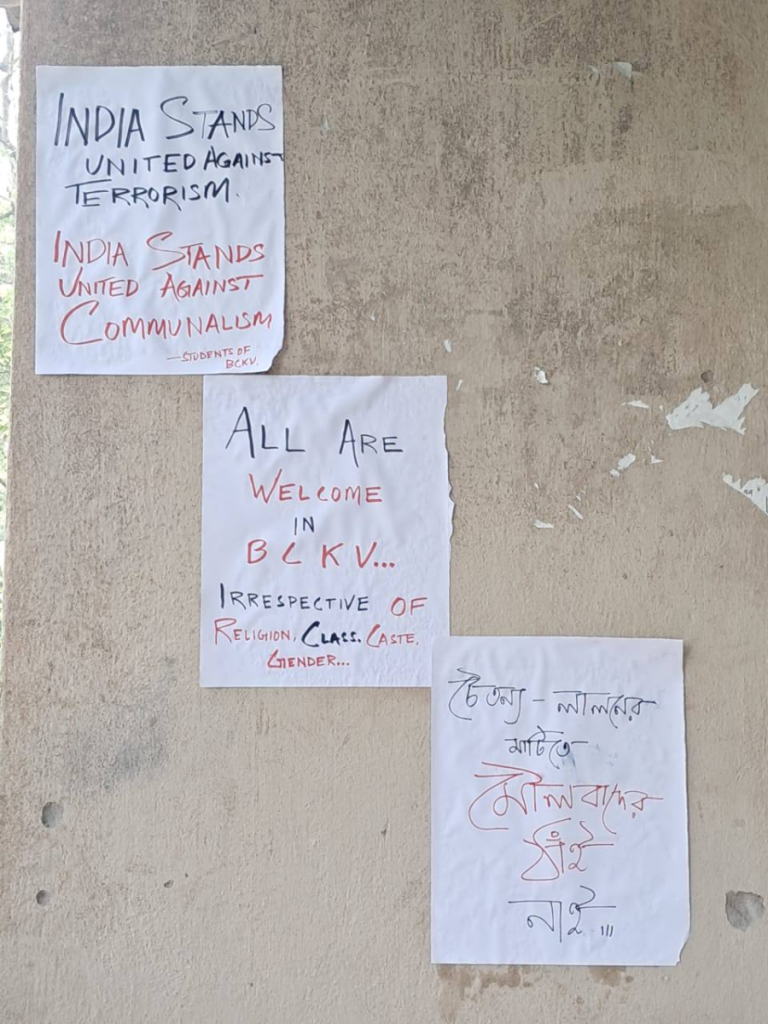 INDIA STANDS
UNITED AGAINST
TERRORISM.
INDIA STANDS
UNITED AGAINST
COMMUNALISM
—STUDENTS OF
BCKV.
ALL ARE
WELCOME
IN
BCKV...
IRRESPECTIVE OF
RELIGION, CLASS. CASTE,
GENDER...
চৈতন্য - লালনের
মাটিতে
মৌলবাদের
ঠাঁই
নাই...